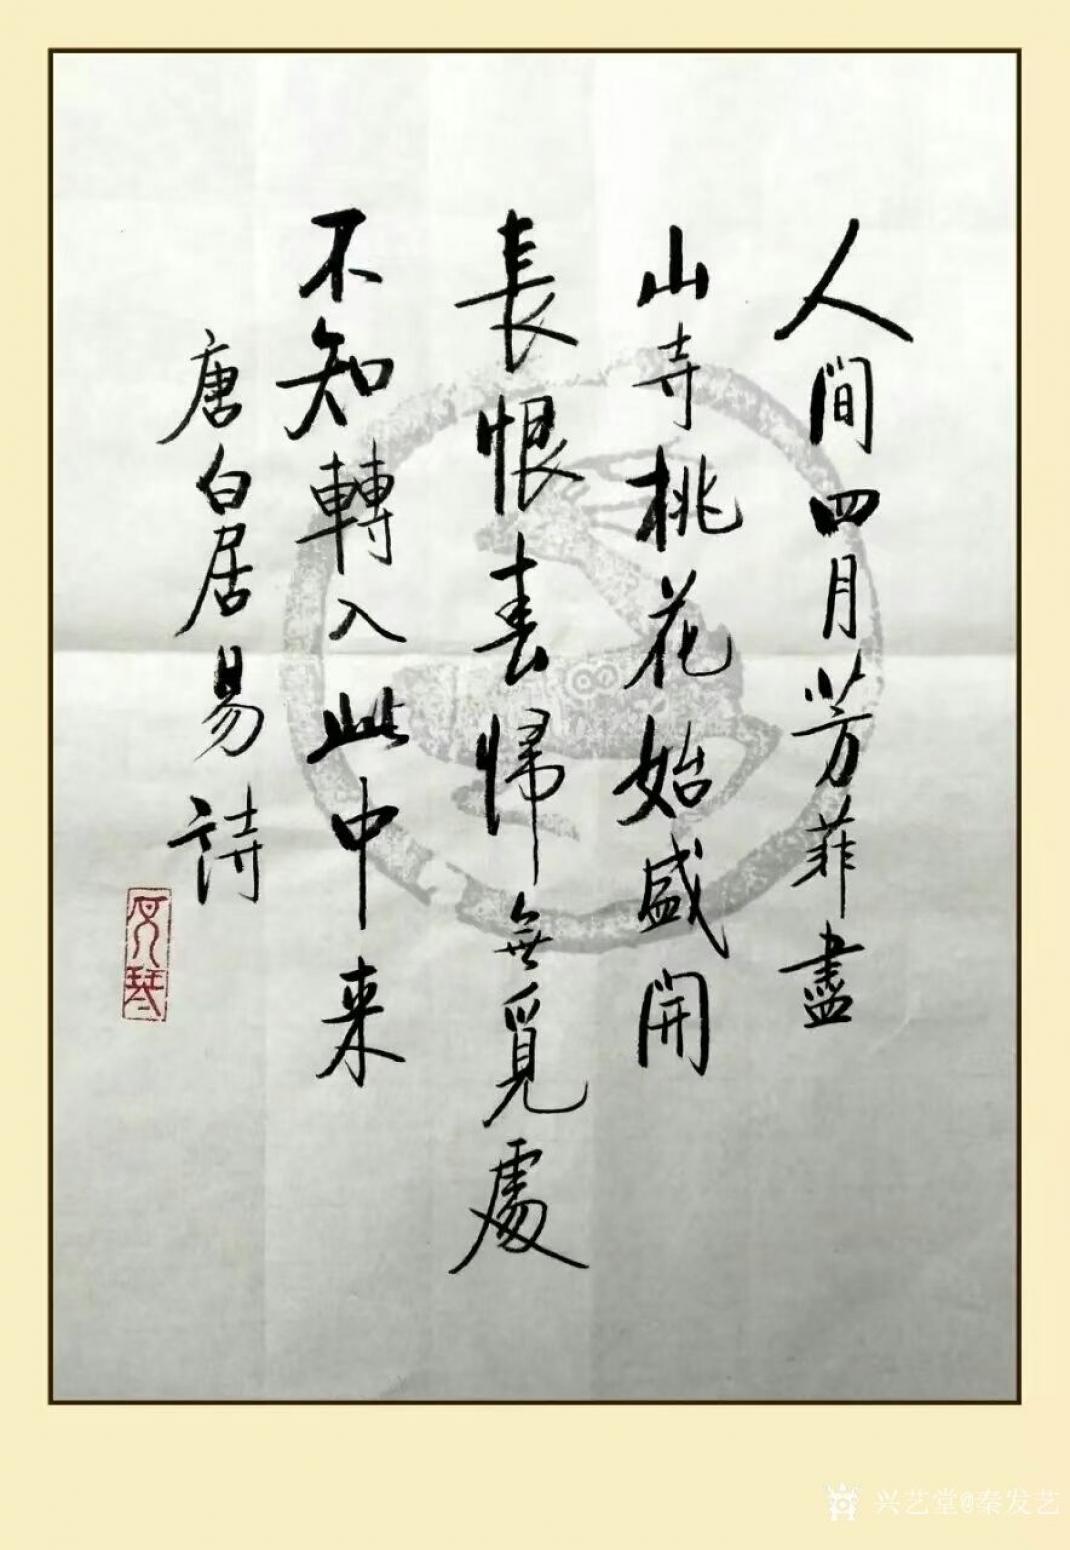 人間四月芳菲盡
山寺桃花始盛開
長恨春歸無覓處
不知轉入此中来
唐白居易詩
兴艺堂@秦发艺